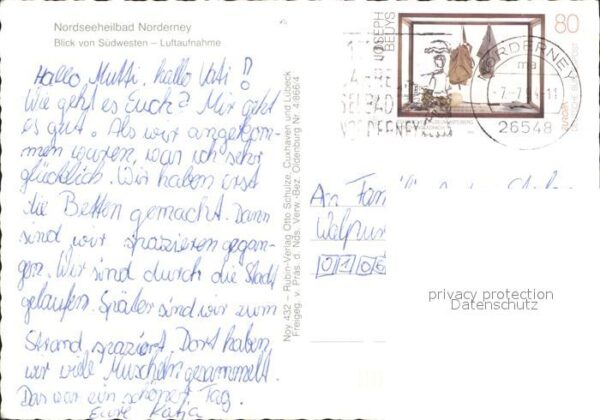 Nordseeheilbad Norderney
Blick von Südwesten – Luftaufnahme
Hallo Mutti, hallo Vati!
Wie geht es Euch? Mir geht
es gut. Als wir angekom-
men waren, war ich sehr
glücklich. Wir haben erst
die Betten gemacht. Dann
sind wir spazieren gegan-
gen. Wir sind durch die Stadt
gelaufen. Später sind wir zum
Strand spaziert. Dort haben
wir viele Muscheln gesammelt.
Das war ein schöner Tag.
Eure Katja
Noy 432 – Rubin-Verlag Otto Schulze, Cuxhaven und Lübeck
Freigeg. v. Präs. d. Nds. Verw.-Bez. Oldenburg Nr. 4 866/4
JOSEPH
BEUYS
80
EUROPA
NORDERNEY
NORDERNEY
ma
-7.-7.
11
26548
An Fam
Walpur
0106
privacy protection
Datenschutz